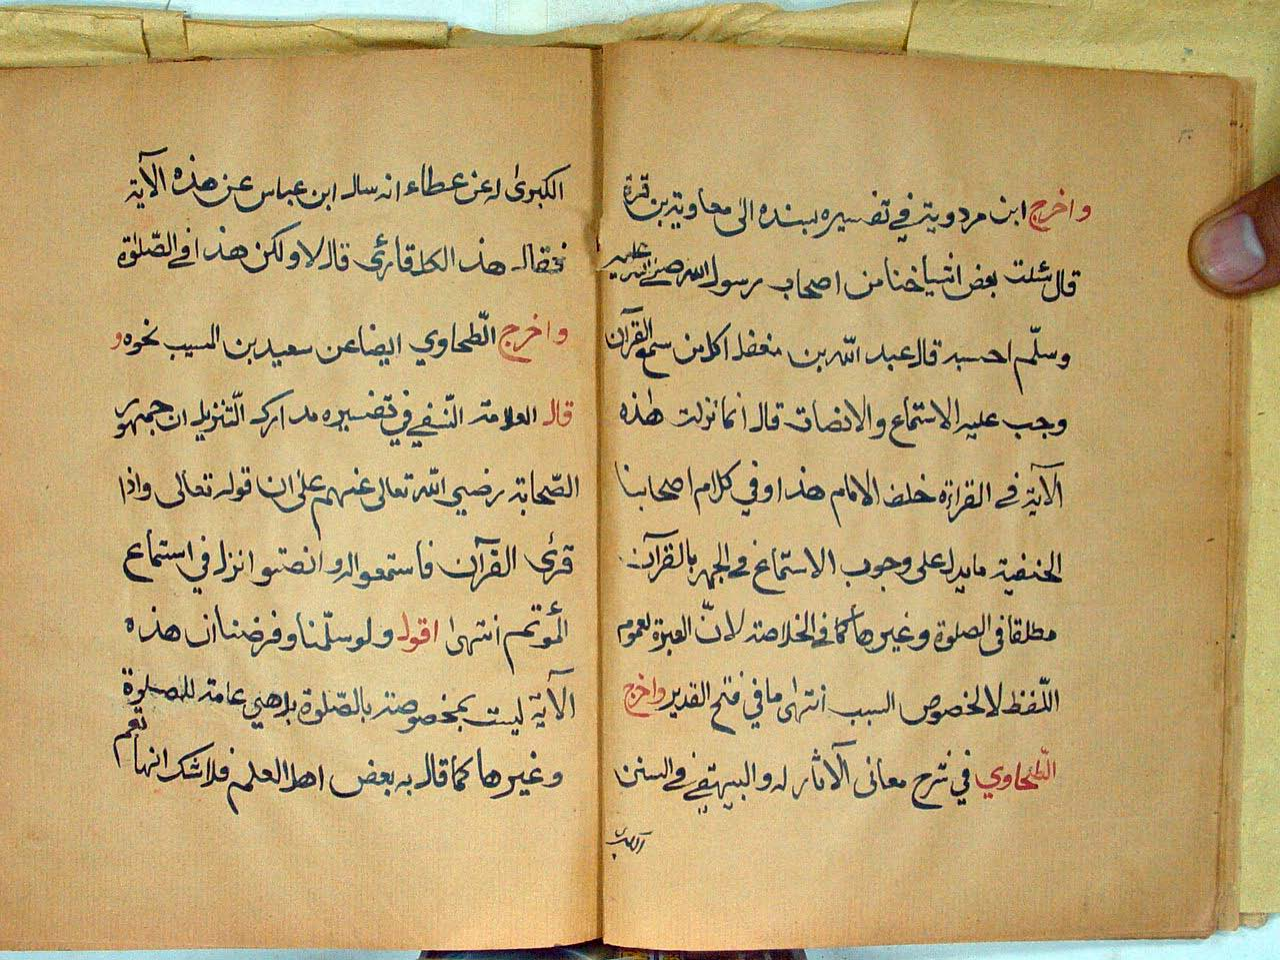 واخرج ابن مردويه في تفسيره بسنده الى معاوية بن قرة
قال سئلت بعض اشياخنا من اصحاب رسول الله صلى الله عليه
وسلم احسبه قال عبد الله بن مغفل اكل من سمع القرآن
وجب عليه الاستماع والانصات قال انما نزلت هذه
الآية في القراءة خلف الامام هذا وفي كلام اصحابنا
الحنفية ما يدل على وجوب الاستماع في الجهر بالقرآن
مطلقا في الصلوة وغيرها كما في الخلاصة لانّ العبرة لعموم
اللّفظ لا لخصوص السبب انتهى ما في فتح القدير واخرج
الطّحاوي في شرح معانى الآثار له والبيهقي في السنن
الكبرى
الكبرى له عن عطاء انه سال ابن عباس عن هذه الآية
فقال هذا لكل قارئ قال لا ولكن هذا في الصّلوٰة
واخرج الطّحاوي ايضا عن سعيد بن المسيب نحوه و
قال العلامة النّسفي في تفسيره مدارك التّنزيل ان جمهور
الصّحابة رضي الله تعالى عنهم على ان قوله تعالى واذا
قرئ القرآن فاستمعوا له وانصتوا نزل في استماع
المؤتم انتهى اقول ولو سلّمنا وفرضنا ان هذه
الآية ليست بمخصوصة بالصّلوة بل هي عامة للصلوة
وغيرها كما قال به بعض اهل العلم فلا شك انها تعم